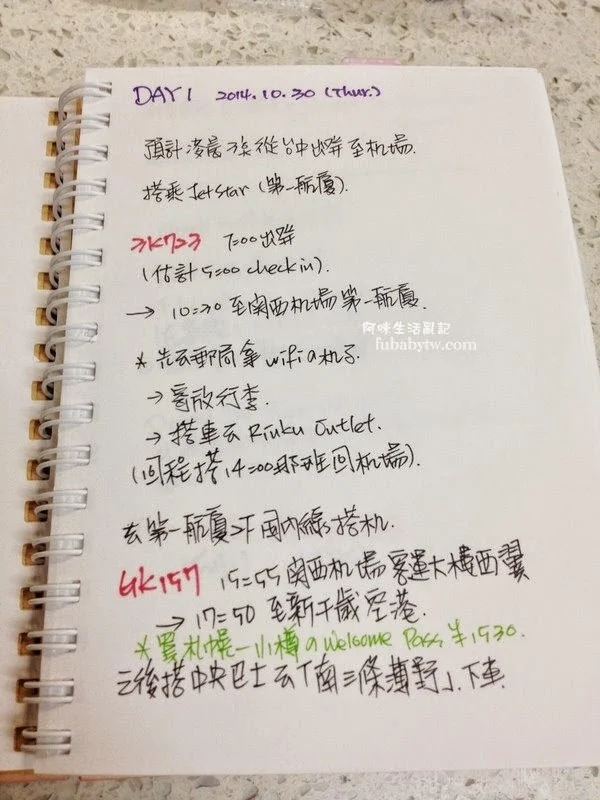 DAY 1 2014.10.30 (Thur.)
預計凌晨 從台中出發至机場.
搭乘 Jetstar (第一航廈).
3K723 7:00出發
(估計5:00 check in).
→ 10:30 至関西机場第一航廈.
阿咪生活剧記
fubabytw.com
* 先去郵局拿 wifi の机子.
→ 寄放行李.
→ 搭車去 Rinku Outlet.
(回程搭14:00那班回机場).
去第一航廈2F 國內線搭机.
GK157 15:55 関西机場客運大樓西翼
→ 17:50 至新千歲空港.
* 買札幌-小樽の Welcome Pass ¥1530.
之後搭中央巴士去「南三條薄野」.下車.